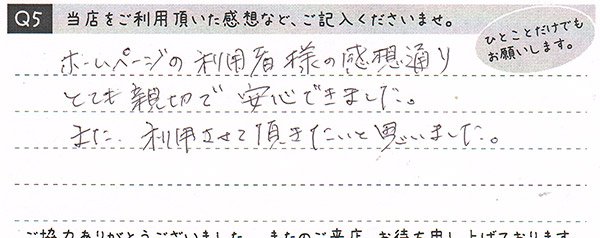 Q5 当店をご利用頂いた感想など、ご記入くださいませ。
ひとことだけでも
お願いします。
ホームページの利用者様の感想通り
とても親切で安心できました。
また、利用させて頂きたいと思いました。
ご協力ありがとうございました。またのご来店、お待ち申し上げております。